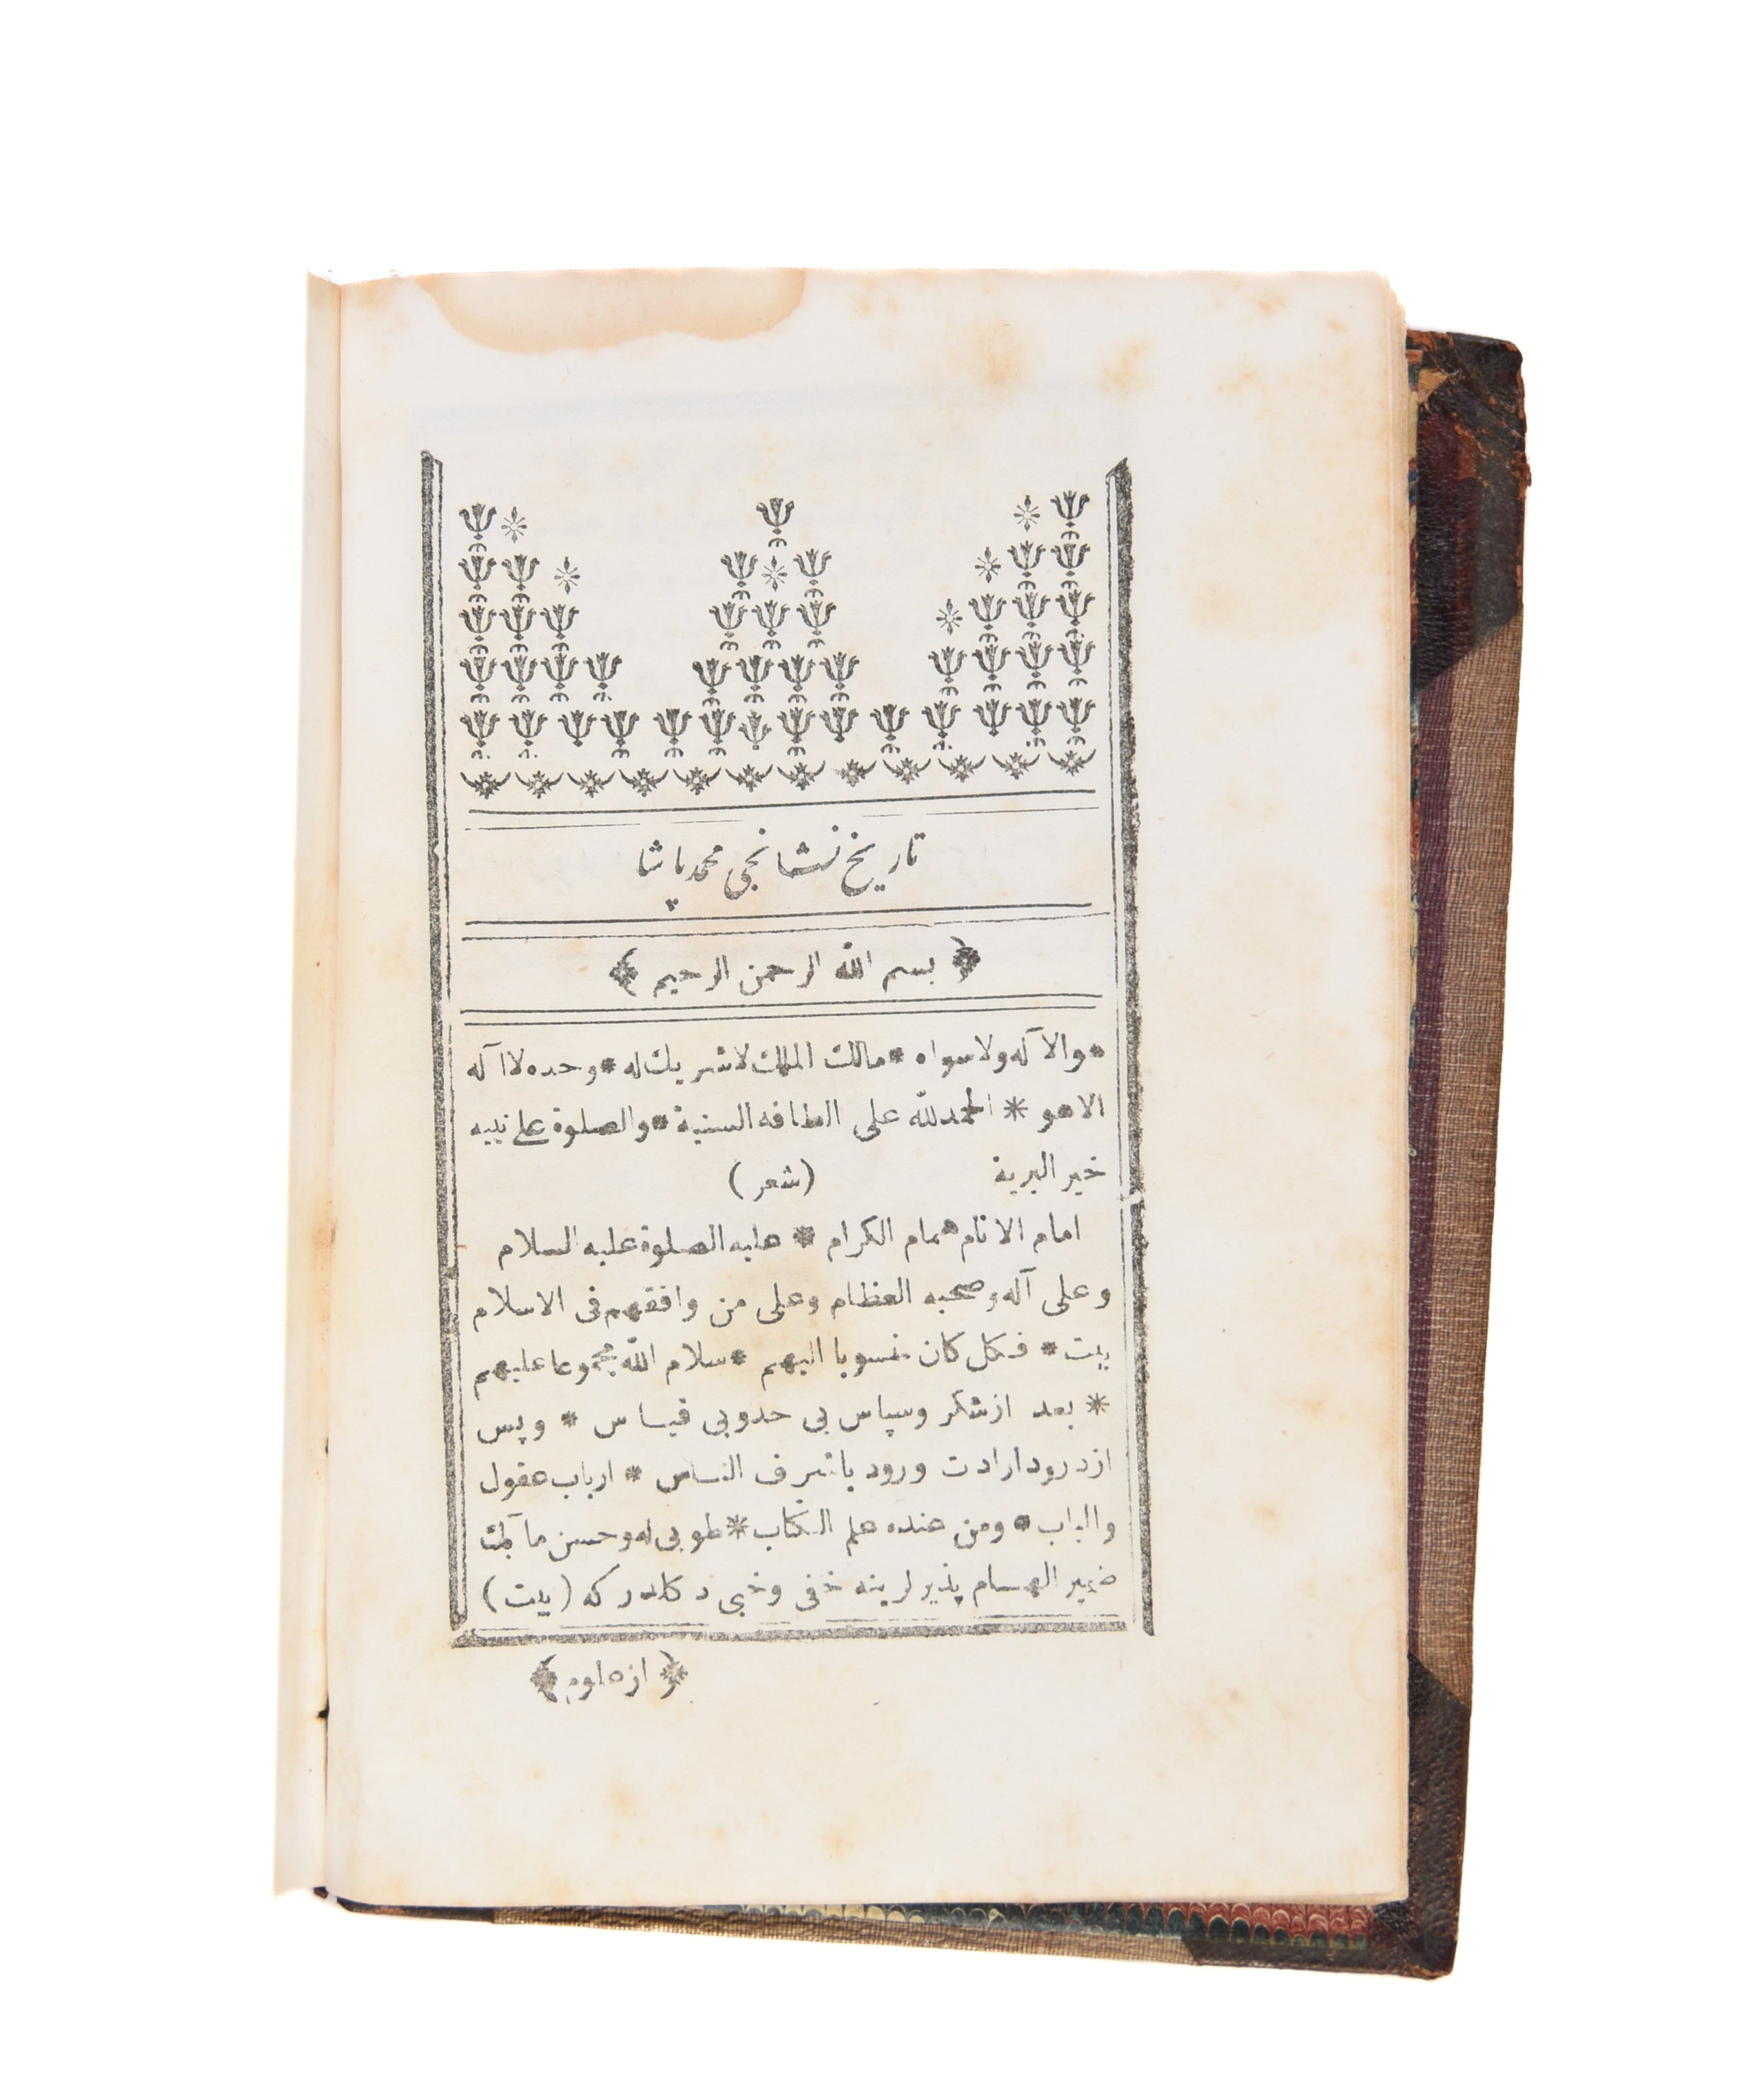 تاريخ نشانجى محمد پاشا
بسم الله الرحمن الرحيم
* والا آله ولا سواه * مالك الملك لا شريك له * وحده لا آله
الا هو * الحمد لله على الطافه السنية * والصلوة على نبيه
خير البرية (شعر)
امام الانام همام الكرام * عليه الصلوة عليه السلام
وعلى آله وصحبه العظام وعلى من وافقهم فى الاسلام
بيت * فكل كان منسوبا اليهم * سلام الله مجموعا عليهم
* بعد از شكر وسپاس بى حد وبى قياس * وپس
از درود ارادت ورود باشرف الناس * ارباب عقول
والباب * ومن عنده علم الكتاب * طوبى له وحسن مآبك
ضمير الهام پذير لرينه خفى وخبى دكلدر كه (بيت)
از علوم